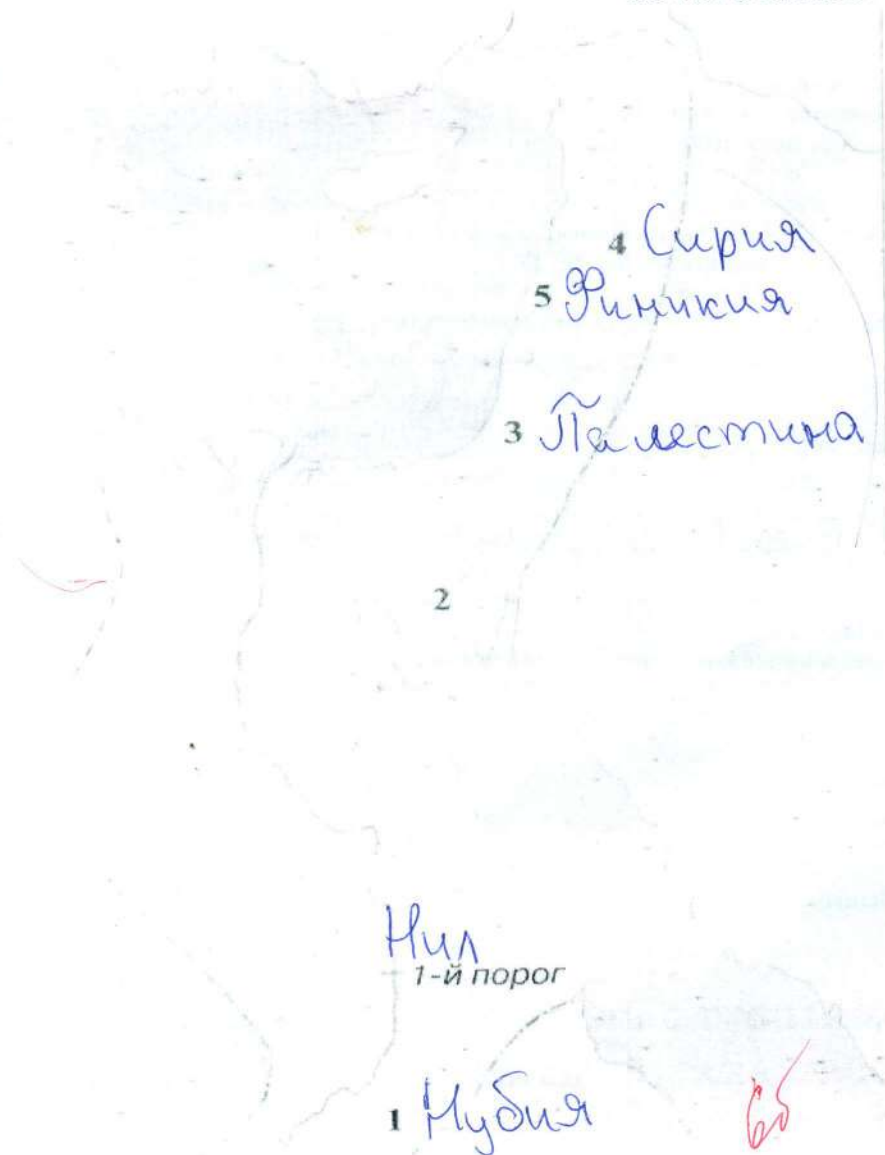 4 Сирия
5 Финикия
3 Палестина
2
Нил
1-й порог
1 Нубия
6б